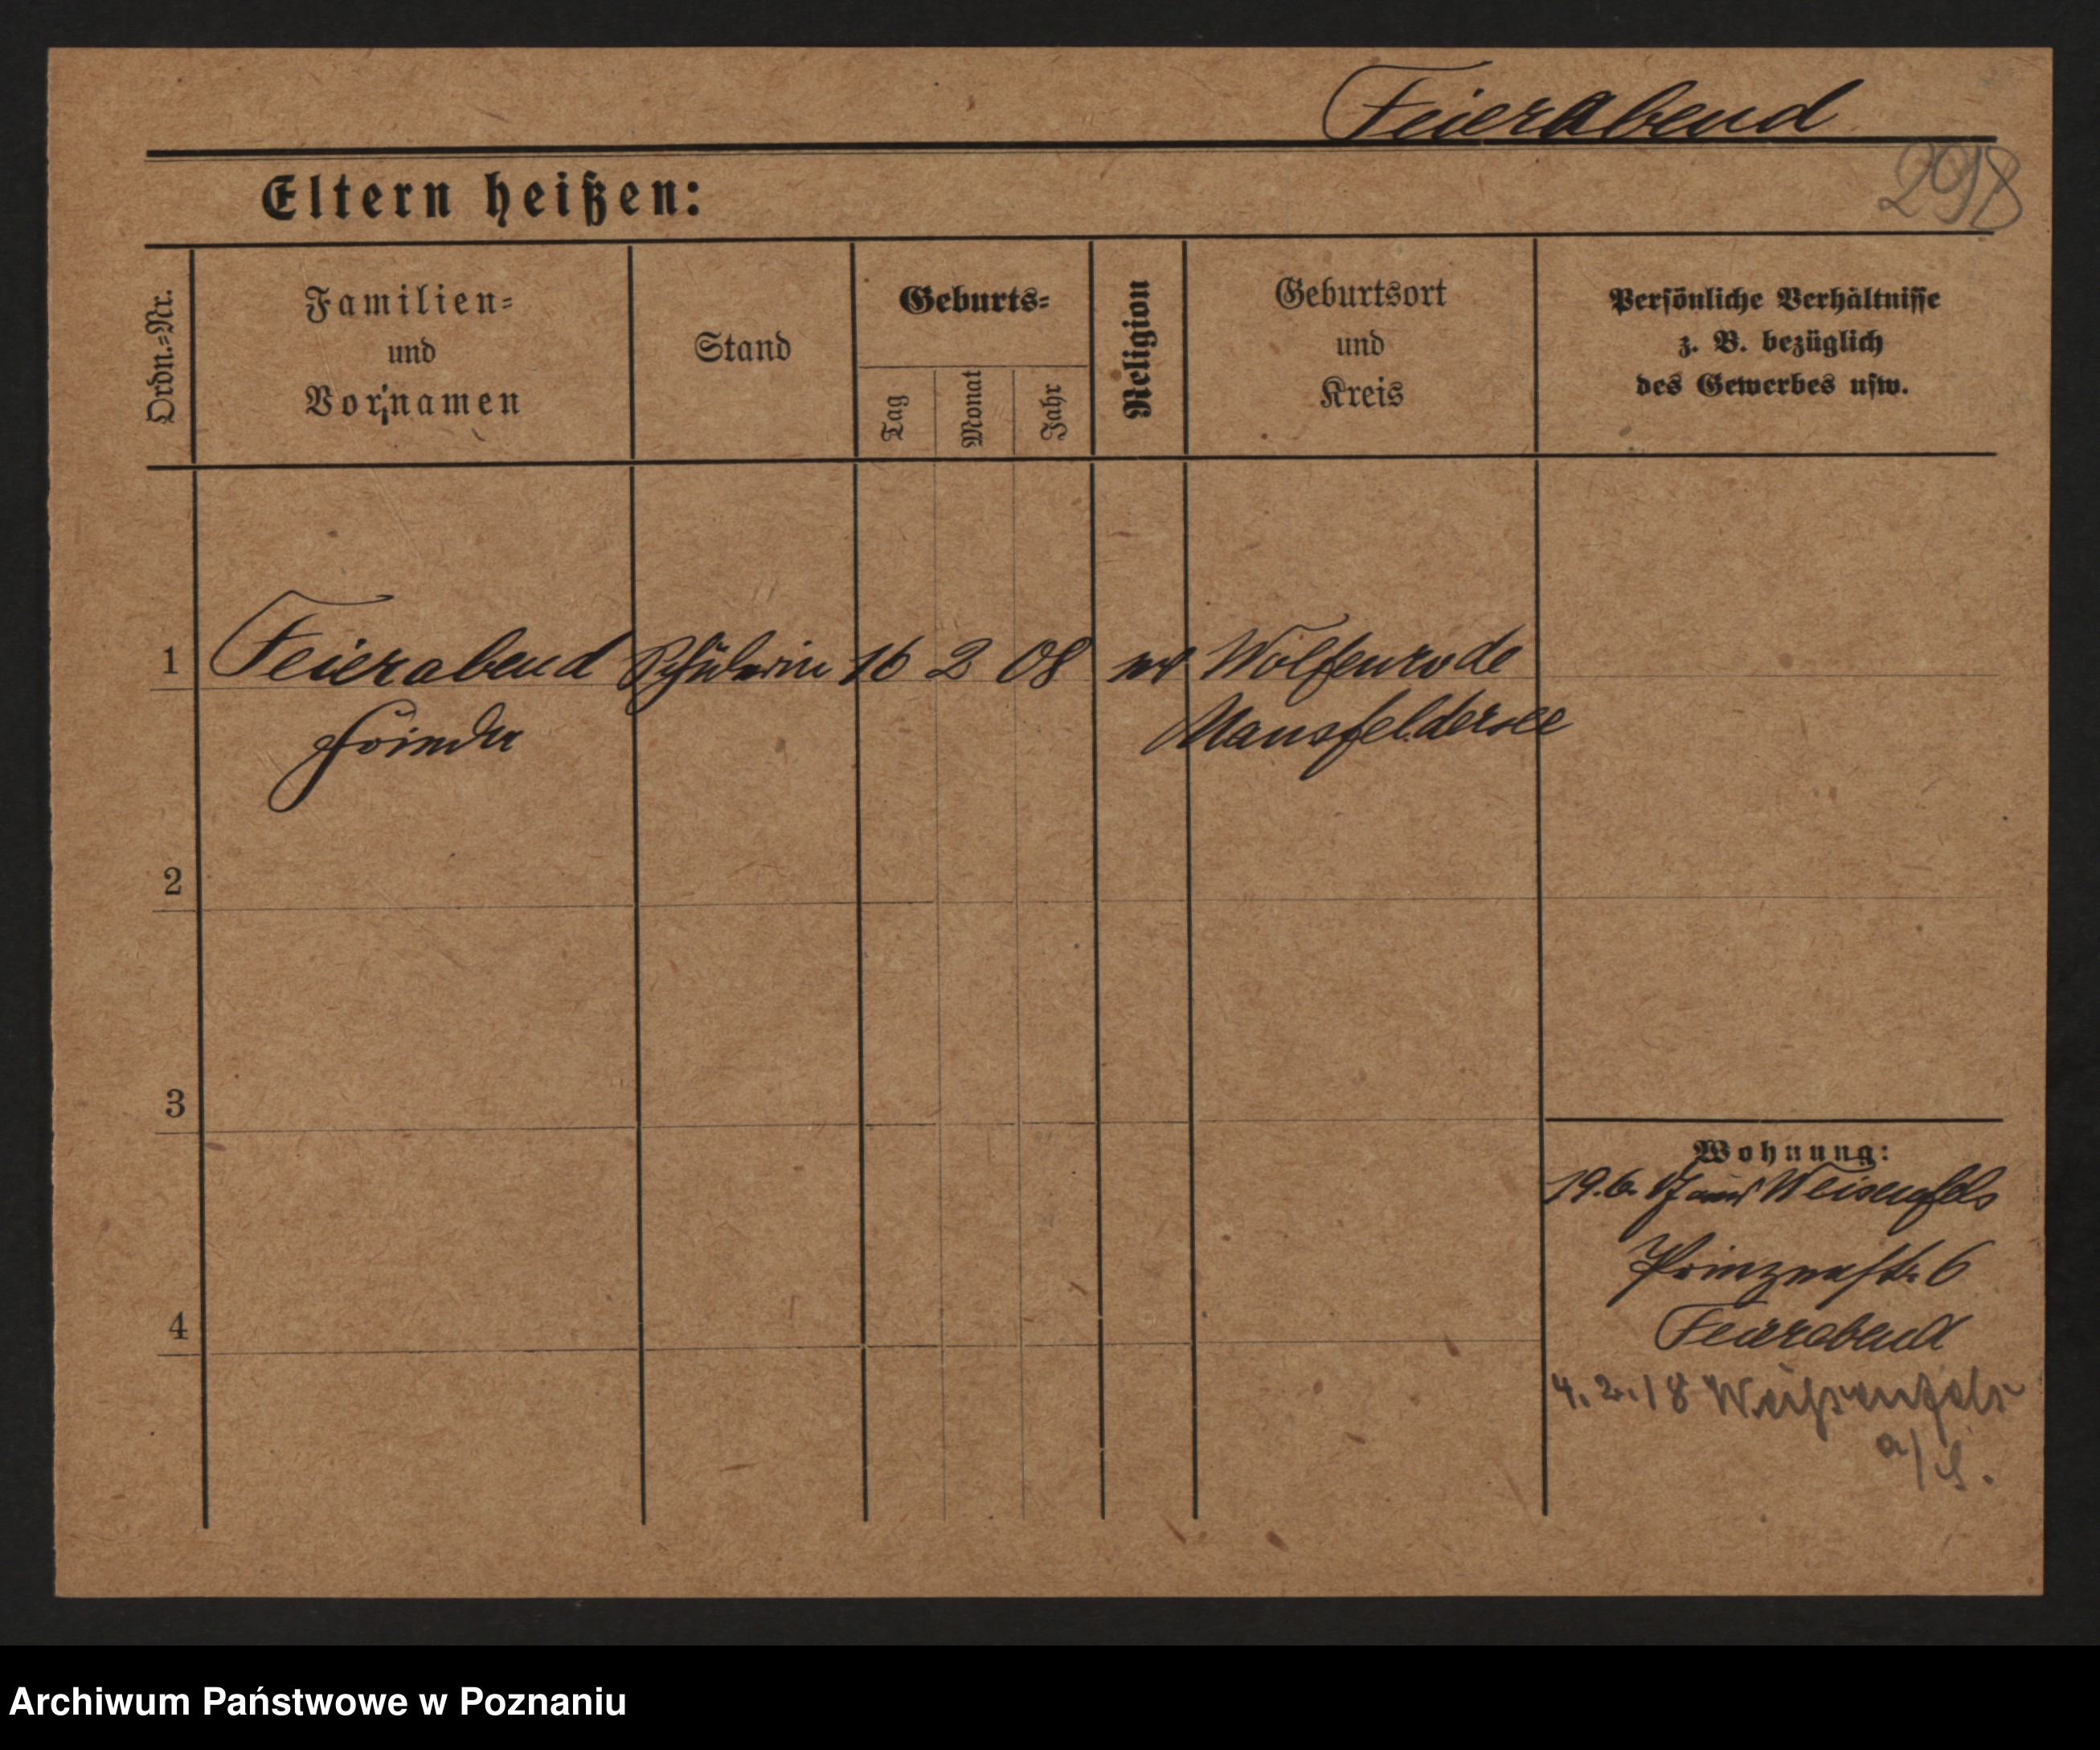 Feierabend
298
Eltern heißen:
Ordn.=Nr.
Familien=
und
Vornamen
Stand
Geburts=
Tag
Monat
Jahr
Religion
Geburtsort
und
Kreis
Persönliche Verhältnisse
z. B. bezüglich
des Gewerbes usw.
1
Feierabend Schülerin 16 2 08 Wolfenrode
Mansfeldersee
2
3
4
Wohnung:
19.6. 17 aus Weisenfels
Prinzenstr. 6
Feierabend
4. 2. 18 Weißenfels
a/S.
Archiwum Państwowe w Poznaniu